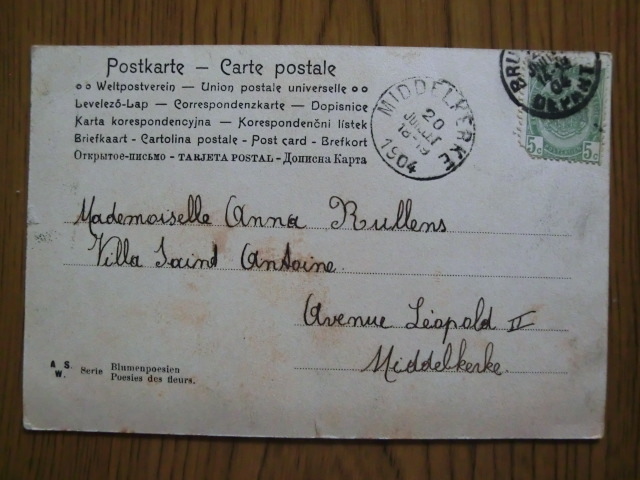 Postkarte — Carte postale
Weltpostverein — Union postale universelle
Levelező-Lap — Correspondenzkarte — Dopisnice
Karta korespondencyjna — Korespondenční lístek
Briefkaart - Cartolina postale - Post card - Brefkort
Открытое-письмо - TARJETA POSTAL - Дописна Карта
MIDDELKERKE
20
JUILLET
18-19
1904
DEPART
04
5c 5c
Mademoiselle Anna Rullens
Villa Saint Antoine.
Avenue Léopold II
Middelkerke.
A. S. W. Serie Blumenpoesien
Poesies des fleurs.